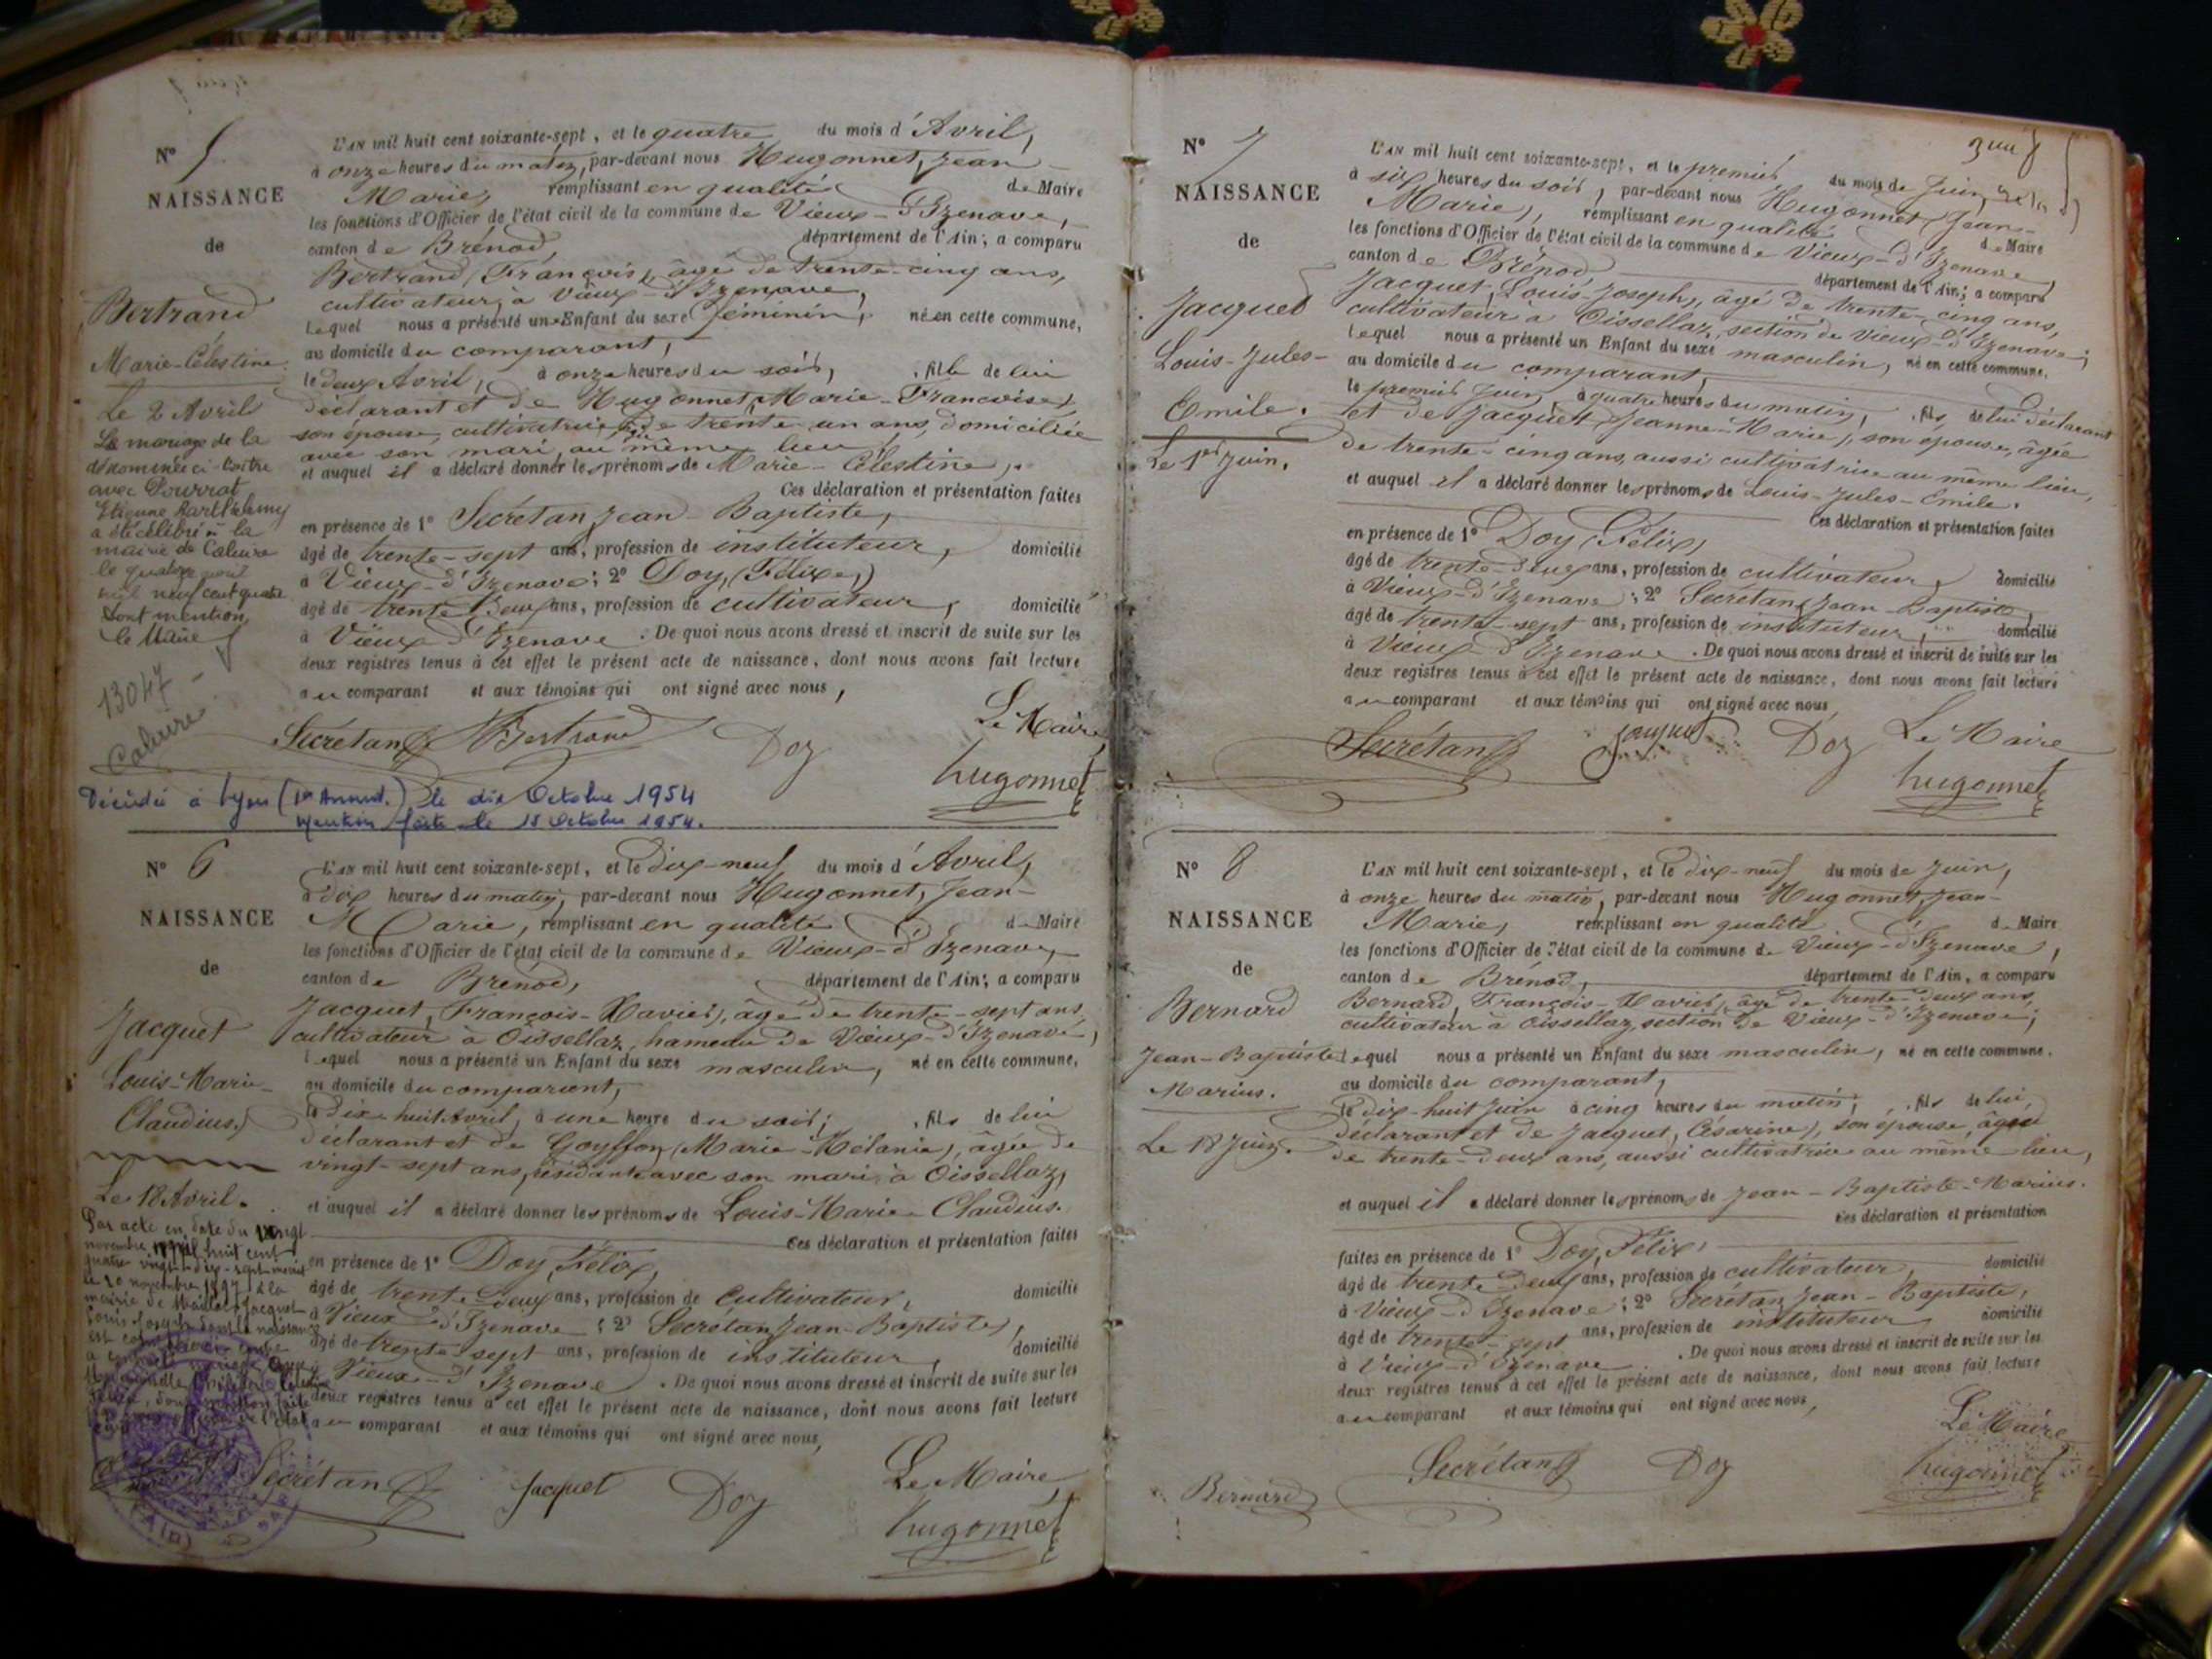 N° 5
NAISSANCE
de
Bertrand
Marie-Célestine
Le 2 Avril
Le mariage de la
dénommée ci-contre
avec Pourrat
Etienne Barthélemy
a été célébré à la
mairie de Caluire
le quatre
mil neuf cent quatre
Dont mention
Le Maire
13047
Caluire
L'AN mil huit cent soixante-sept, et le quatre du mois d'Avril,
à onze heures du matin, par-devant nous Hugonnet, Jean
Marie, remplissant en qualité de Maire
les fonctions d'Officier de l'état civil de la commune de Vieux-d'Izenave,
canton de Brénod, département de l'Ain; a comparu
Bertrand (François), âgé de trente-cinq ans,
cultivateur, à Vieux-d'Izenave,
Lequel nous a présenté un Enfant du sexe féminin, né en cette commune,
au domicile du comparant,
le deux Avril, à onze heures du soir, fille de lui
déclarant et de Hugonnet, Marie-Françoise,
son épouse, cultivatrice, âgée de trente-un ans, domiciliée
avec son mari, au même lieu,
et auquel il a déclaré donner les prénoms de Marie-Célestine,
Ces déclaration et présentation faites
en présence de 1° Secrétan Jean-Baptiste,
âgé de trente-sept ans, profession de instituteur, domicilié
à Vieux-d'Izenave; 2° Doy, (Félix,)
âgé de trente-deux ans, profession de cultivateur, domicilié
à Vieux-d'Izenave. De quoi nous avons dressé et inscrit de suite sur les
deux registres tenus à cet effet le présent acte de naissance, dont nous avons fait lecture
au comparant et aux témoins qui ont signé avec nous,
Secrétan Bertrand Doy Le Maire
hugonnet
Décédée à Lyon (1er Arrond.) le dix Octobre 1954
Mention faite le 15 Octobre 1954.
N° 6
NAISSANCE
de
Jacquet
Louis-Marie-
Claudius.
Le 18 Avril.
Par acte en date du vingt
novembre mil huit cent
quatre vingt-dix-sept inscrit
le 20 novembre 1897 à la
mairie de Maillat Jacquet
Louis Joseph dont la naissance
est constatée ci-contre
a contracté mariage avec
(Ain)
L'AN mil huit cent soixante-sept, et le dix-neuf du mois d'Avril,
à dix heures du matin, par-devant nous Hugonnet, Jean-
Marie, remplissant en qualité de Maire
les fonctions d'Officier de l'état civil de la commune de Vieux-d'Izenave,
canton de Brénod, département de l'Ain; a comparu
Jacquet, François-Xavier, âgé de trente-sept ans,
cultivateur à Oissellaz, hameau de Vieux-d'Izenave,
Lequel nous a présenté un Enfant du sexe masculin, né en cette commune,
au domicile du comparant,
le dix-huit Avril, à une heure du soir; fils de lui
déclarant et de Goyffon (Marie-Mélanie), âgée de
vingt-sept ans, résidante avec son mari, à Oissellaz,
et auquel il a déclaré donner les prénoms de Louis-Marie-Claudius.
Ces déclaration et présentation faites
en présence de 1° Doy, Félix,
âgé de trente-deux ans, profession de Cultivateur, domicilié
à Vieux-d'Izenave; 2° Secrétan, Jean-Baptiste,
âgé de trente-sept ans, profession de instituteur, domicilié
à Vieux-d'Izenave. De quoi nous avons dressé et inscrit de suite sur les
deux registres tenus à cet effet le présent acte de naissance, dont nous avons fait lecture
au comparant et aux témoins qui ont signé avec nous,
Secrétan Jacquet Doy Le Maire
hugonnet
N° 7
NAISSANCE
de
Jacquet
Louis-Jules-
Emile.
Le 1er Juin.
L'AN mil huit cent soixante-sept, et le premier du mois de Juin,
à six heures du soir, par-devant nous Hugonnet, Jean-
Marie, remplissant en qualité de Maire
les fonctions d'Officier de l'état civil de la commune de Vieux-d'Izenave,
canton de Brénod, département de l'Ain; a comparu
Jacquet, Louis-Joseph, âgé de trente-cinq ans,
cultivateur à Oissellaz, section de Vieux-d'Izenave;
Lequel nous a présenté un Enfant du sexe masculin, né en cette commune,
au domicile du comparant,
le premier Juin, à quatre heures du matin, fils de lui déclarant
et de Jacquet (Jeanne-Marie), son épouse, âgée
de trente-cinq ans, aussi cultivatrice au même lieu,
et auquel il a déclaré donner les prénoms de Louis-Jules-Emile.
Ces déclaration et présentation faites
en présence de 1° Doy (Félix)
âgé de trente-deux ans, profession de cultivateur, domicilié
à Vieux-d'Izenave; 2° Secrétan, Jean-Baptiste,
âgé de trente-sept ans, profession de instituteur, domicilié
à Vieux-d'Izenave. De quoi nous avons dressé et inscrit de suite sur les
deux registres tenus à cet effet le présent acte de naissance, dont nous avons fait lecture
au comparant et aux témoins qui ont signé avec nous
Secrétan Jaquet Doy Le Maire
hugonnet
N° 8
NAISSANCE
de
Bernard
Jean-Baptiste
Marius.
Le 18 Juin.
L'AN mil huit cent soixante-sept, et le dix-neuf du mois de Juin,
à onze heures du matin, par-devant nous Hugonnet, Jean-
Marie, remplissant en qualité de Maire
les fonctions d'Officier de l'état civil de la commune de Vieux-d'Izenave,
canton de Brénod, département de l'Ain, a comparu
Bernard, François-Xavier, âgé de trente-deux ans,
cultivateur à Oissellaz, section de Vieux-d'Izenave;
Lequel nous a présenté un Enfant du sexe masculin, né en cette commune,
au domicile du comparant,
le dix-huit Juin à cinq heures du matin, fils de lui,
déclarant et de Jacquet, Césarine), son épouse, âgée
de trente-deux ans, aussi cultivatrice au même lieu,
et auquel il a déclaré donner les prénoms de Jean-Baptiste-Marius.
Ces déclaration et présentation
faites en présence de 1° Doy, Félix,
âgé de trente-deux ans, profession de cultivateur, domicilié
à Vieux-d'Izenave; 2° Secrétan, Jean-Baptiste,
âgé de trente-sept ans, profession de instituteur domicilié
à Vieux-d'Izenave. De quoi nous avons dressé et inscrit de suite sur les
deux registres tenus à cet effet le présent acte de naissance, dont nous avons fait lecture
au comparant et aux témoins qui ont signé avec nous,
Bernard Secrétan Doy Le Maire
hugonnet